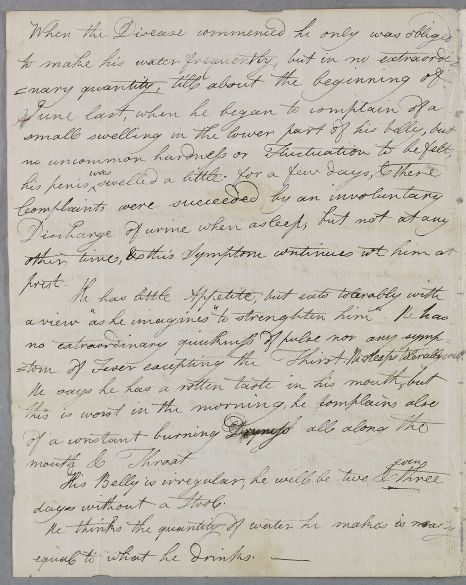 When the Disease commenced he only was obliged
to make his water frequently, but in no extraordi
=nary quantity, till about the beginning of
June last, when he began to complain of a
small swelling in the lower part of his belly, but
no uncommon hardness or Fluctuation to be felt,
his penis was swelled a little for a few days, & these
Complaints were succeeded by an involuntary
Discharge of urine when asleep, but not at any
other time, & this Symptom continues wt him at
prest.
He has little Appetite, but eats tolerably with
a view "as he imagines" to strenghten him". He has
no extraordinary quickness of pulse nor any symp-
=tom of Fever excepting the Thirst. He sleeps tolerably well
He says he has a rotten taste in his mouth, but
this is worst in the morning, he complains also
of a constant burning all along the
mouth & Throat
His Belly is irregular, he will be two & even three
days without a Stool.
He thinks the quantity of water he makes is nearly
equal to what he drinks. —